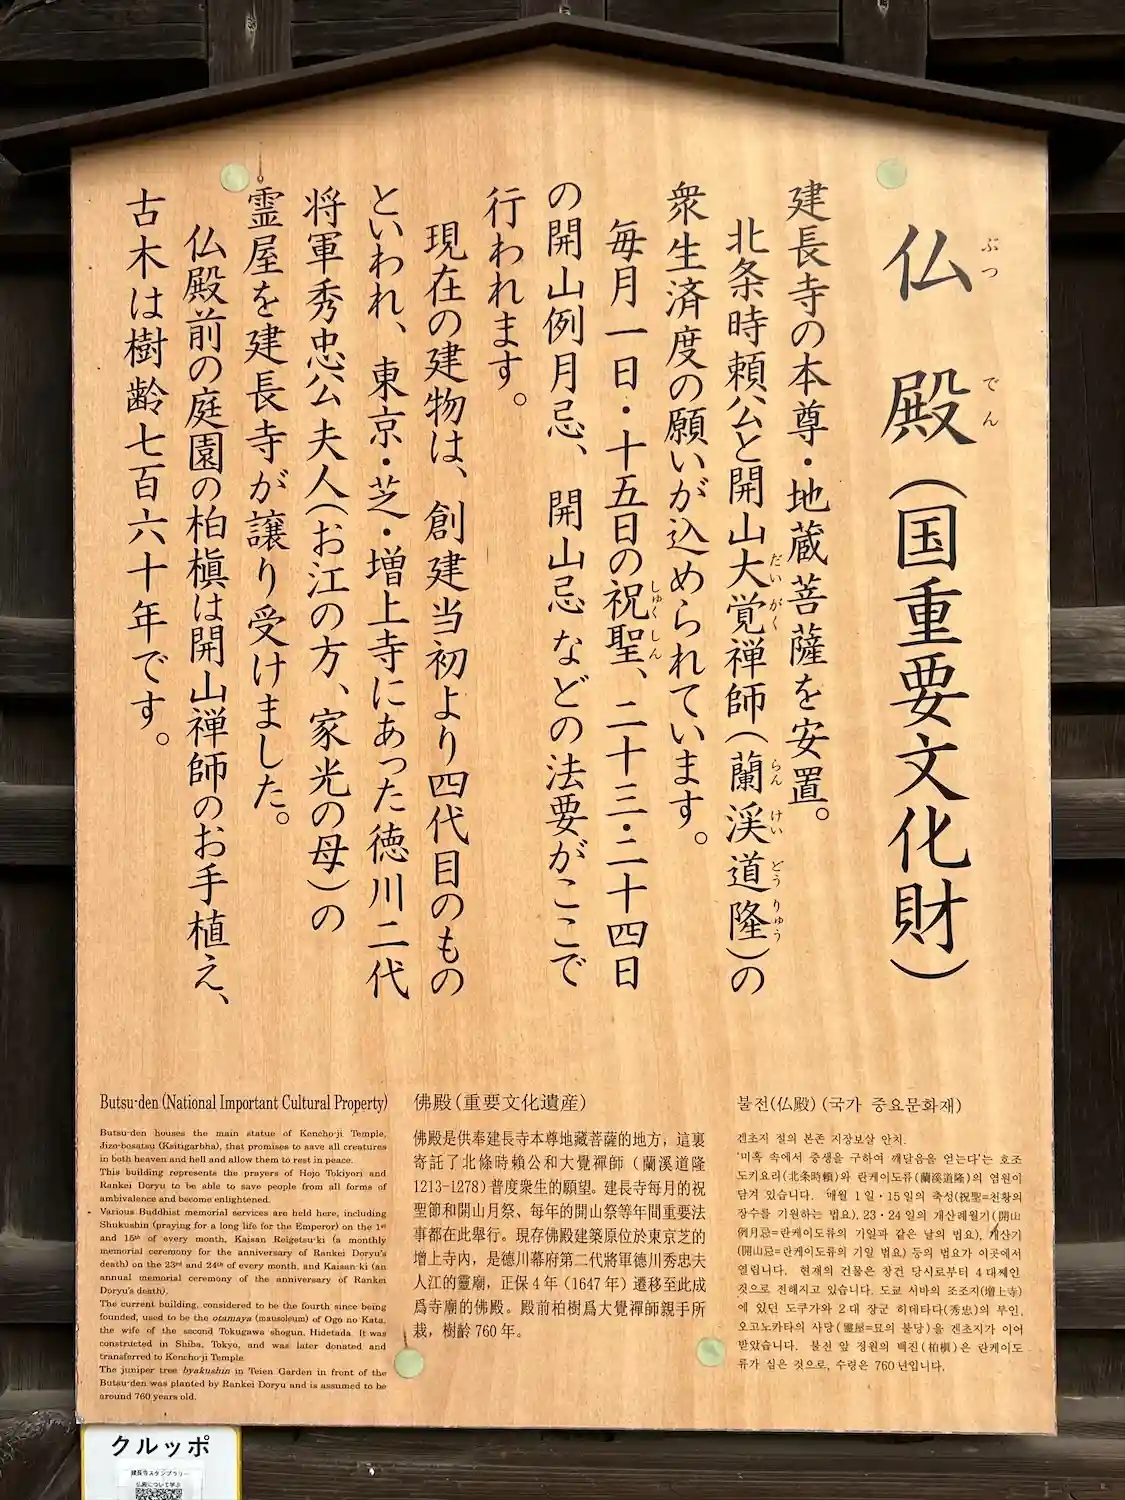 仏殿(国重要文化財)
ぶつ でん
建長寺の本尊・地蔵菩薩を安置。
北条時頼公と開山大覚禅師(蘭渓道隆)の
だい がく らん けい どう りゅう
衆生済度の願いが込められています。
毎月一日・十五日の祝聖、二十三・二十四日
しゅく しん
の開山例月忌、開山忌などの法要がここで
行われます。
現在の建物は、創建当初より四代目のもの
といわれ、東京・芝・増上寺にあった徳川二代
将軍秀忠公夫人(お江の方、家光の母)の
霊屋を建長寺が譲り受けました。
仏殿前の庭園の柏槇は開山禅師のお手植え、
古木は樹齢七百六十年です。
Butsu-den (National Important Cultural Property)
Butsu-den houses the main statue of Kencho-ji Temple,
Jizo-bosatsu (Ksitigarbha), that promises to save all creatures
in both heaven and hell and allow them to rest in peace.
This building represents the prayers of Hojo Tokiyori and
Rankei Doryu to be able to save people from all forms of
ambivalence and become enlightened.
Various Buddhist memorial services are held here, including
Shukushin (praying for a long life for the Emperor) on the 1st
and 15th of every month, Kaisan Reigetsu-ki (a monthly
memorial ceremony for the anniversary of Rankei Doryu's
death) on the 23rd and 24th of every month, and Kaisan-ki (an
annual memorial ceremony of the anniversary of Rankei
Doryu's death).
The current building, considered to be the fourth since being
founded, used to be the otamaya (mausoleum) of Ogo no Kata,
the wife of the second Tokugawa shogun, Hidetada. It was
constructed in Shiba, Tokyo, and was later donated and
transferred to Kencho-ji Temple.
The juniper tree byakushin in Teien Garden in front of the
Butsu-den was planted by Rankei Doryu and is assumed to be
around 760 years old.
佛殿(重要文化遺産)
佛殿是供奉建長寺本尊地藏菩薩的地方，這裏
寄託了北條時賴公和大覺禪師（蘭溪道隆
1213-1278）普度衆生的願望。建長寺每月的祝
聖節和開山月祭、每年的開山祭等年間重要法
事都在此舉行。現存佛殿建築原位於東京芝的
增上寺內，是德川幕府第二代將軍德川秀忠夫
人江的靈廟，正保4年（1647年）遷移至此成
爲寺廟的佛殿。殿前柏樹爲大覺禪師親手所
栽，樹齡760年。
불전(仏殿) (국가 중요문화재)
겐초지 절의 본존 지장보살 안치.
'미혹 속에서 중생을 구하여 깨달음을 얻는다'는 호조
도키요리(北条時頼)와 란케이도류(蘭溪道隆)의 염원이
담겨 있습니다. 매월 1일・15일의 축성(祝聖=천황의
장수를 기원하는 법요), 23・24일의 개산례월기(開山
例月忌=란케이도류의 기일과 같은 날의 법요), 개산기
(開山忌=란케이도류의 기일 법요) 등의 법요가 이곳에서
열립니다. 현재의 건물은 창건 당시로부터 4대째인
것으로 전해지고 있습니다. 도쿄 시바의 조조지(増上寺)
에 있던 도쿠가와 2대 장군 히데타다(秀忠)의 부인,
오고노카타의 사당(靈屋=묘의 불당)을 겐초지가 이어
받았습니다. 불전 앞 정원의 백진(柏槇)은 란케이도
류가 심은 것으로, 수령은 760년입니다.
クルッポ
建長寺スタンプラリー
仏殿について学ぶ